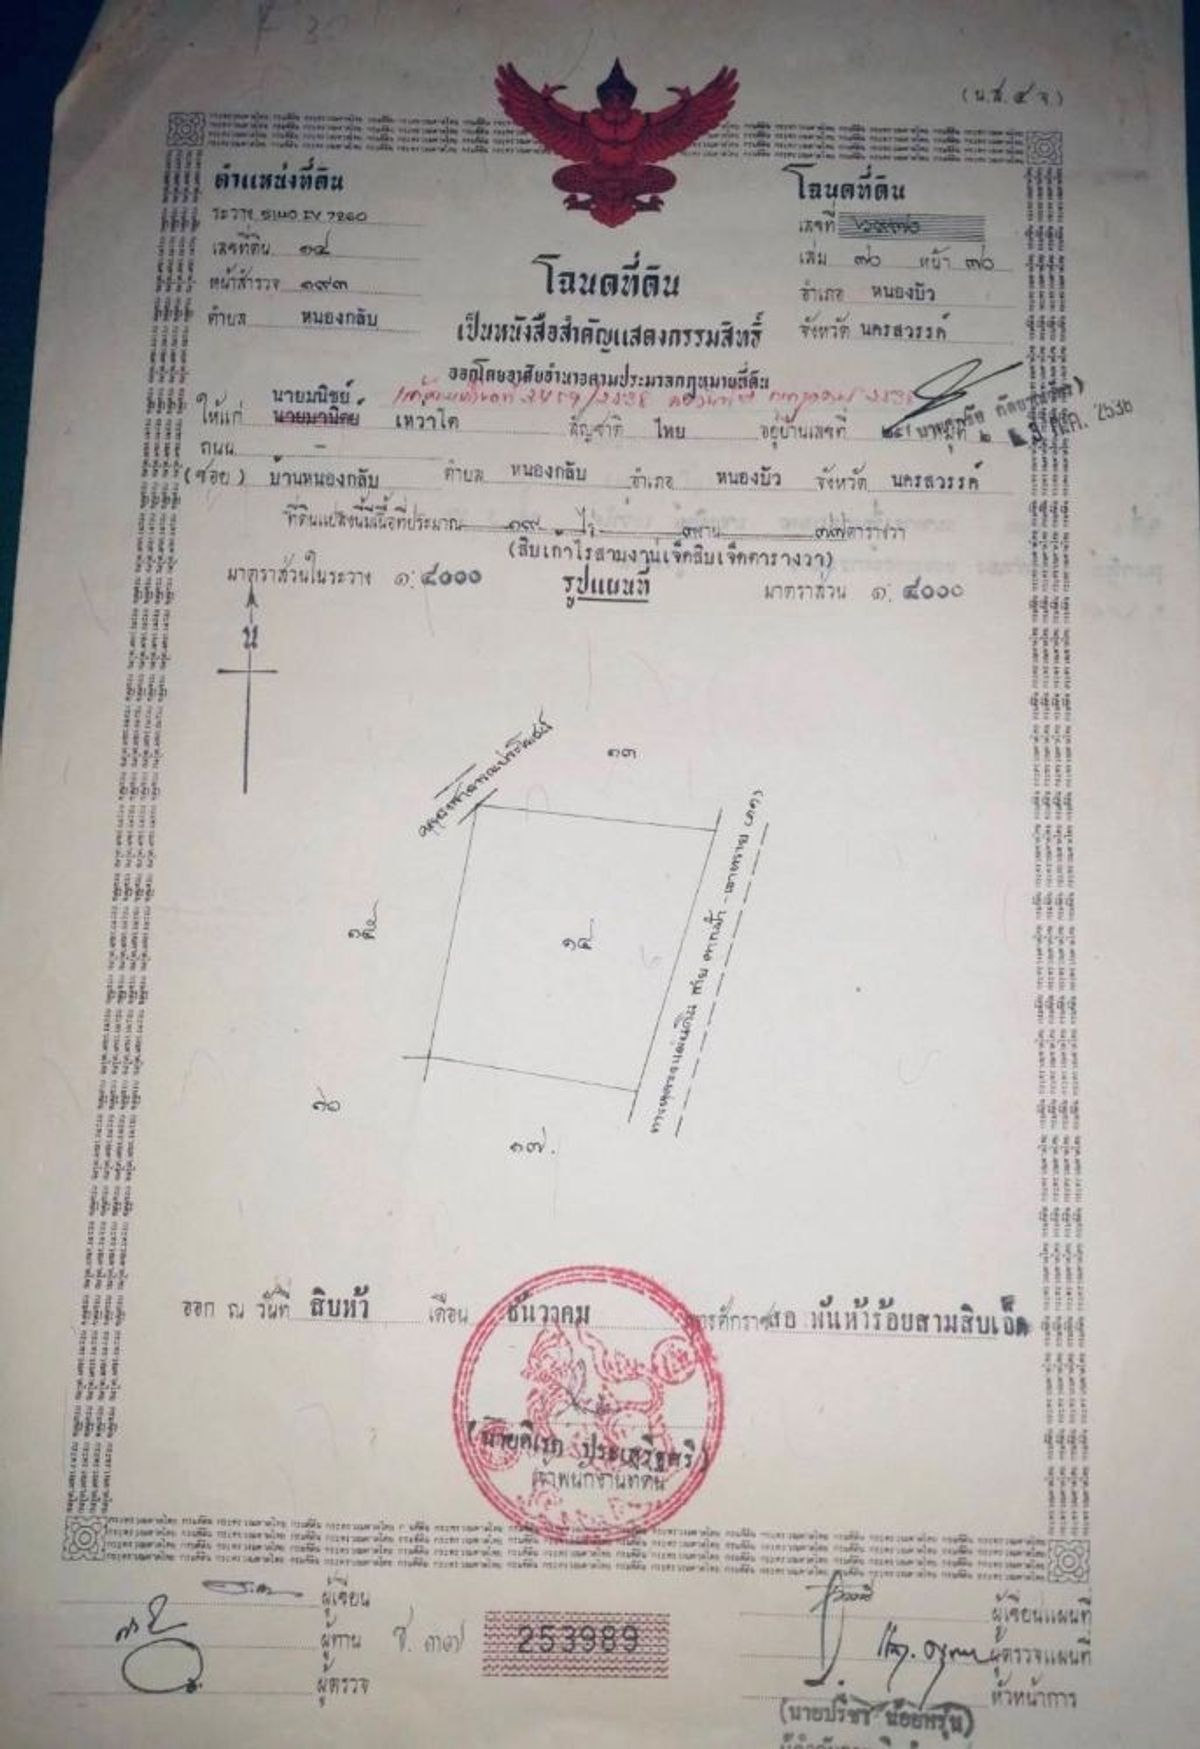 (น.ส. ๔ จ.)
ตำแหน่งที่ดิน
ระวาง 5140 IV 7260
เลขที่ดิน ๑๔
หน้าสำรวจ ๑๙๓
ตำบล หนองกลับ
โฉนดที่ดิน
เลขที่
เล่ม ๗๐ หน้า ๗๐
อำเภอ หนองบัว
จังหวัด นครสวรรค์
โฉนดที่ดิน
เป็นหนังสือสำคัญแสดงกรรมสิทธิ์
ออกโดยอาศัยอำนาจตามประมวลกฎหมายที่ดิน
นายมนิชย์
ให้แก่ นายมานิตย์ เหว่าโต สัญชาติ ไทย อยู่บ้านเลขที่ หมู่ที่ ๒
ถนน -
(ซอย) บ้านหนองกลับ ตำบล หนองกลับ อำเภอ หนองบัว จังหวัด นครสวรรค์
ที่ดินแปลงนี้มีเนื้อที่ประมาณ ๑๙ ไร่ ๓ งาน ๗๗ ตารางวา
(สิบเก้าไร่สามงานเจ็ดสิบเจ็ดตารางวา)
มาตราส่วนในระวาง ๑:๔๐๐๐ รูปแผนที่ มาตราส่วน ๑:๔๐๐๐
น
๑๓
๑๔
๑๗.
ออก ณ วันที่ สิบห้า เดือน ธันวาคม พุทธศักราช สองพันห้าร้อยสามสิบเอ็ด
เจ้าพนักงานที่ดิน
ผู้เขียน
ผู้ทาน
ผู้ตรวจ
253989
ผู้เขียนแผนที่
ผู้ตรวจแผนที่
หัวหน้าการ
(นายปรีชา น้อยพรุ่น)